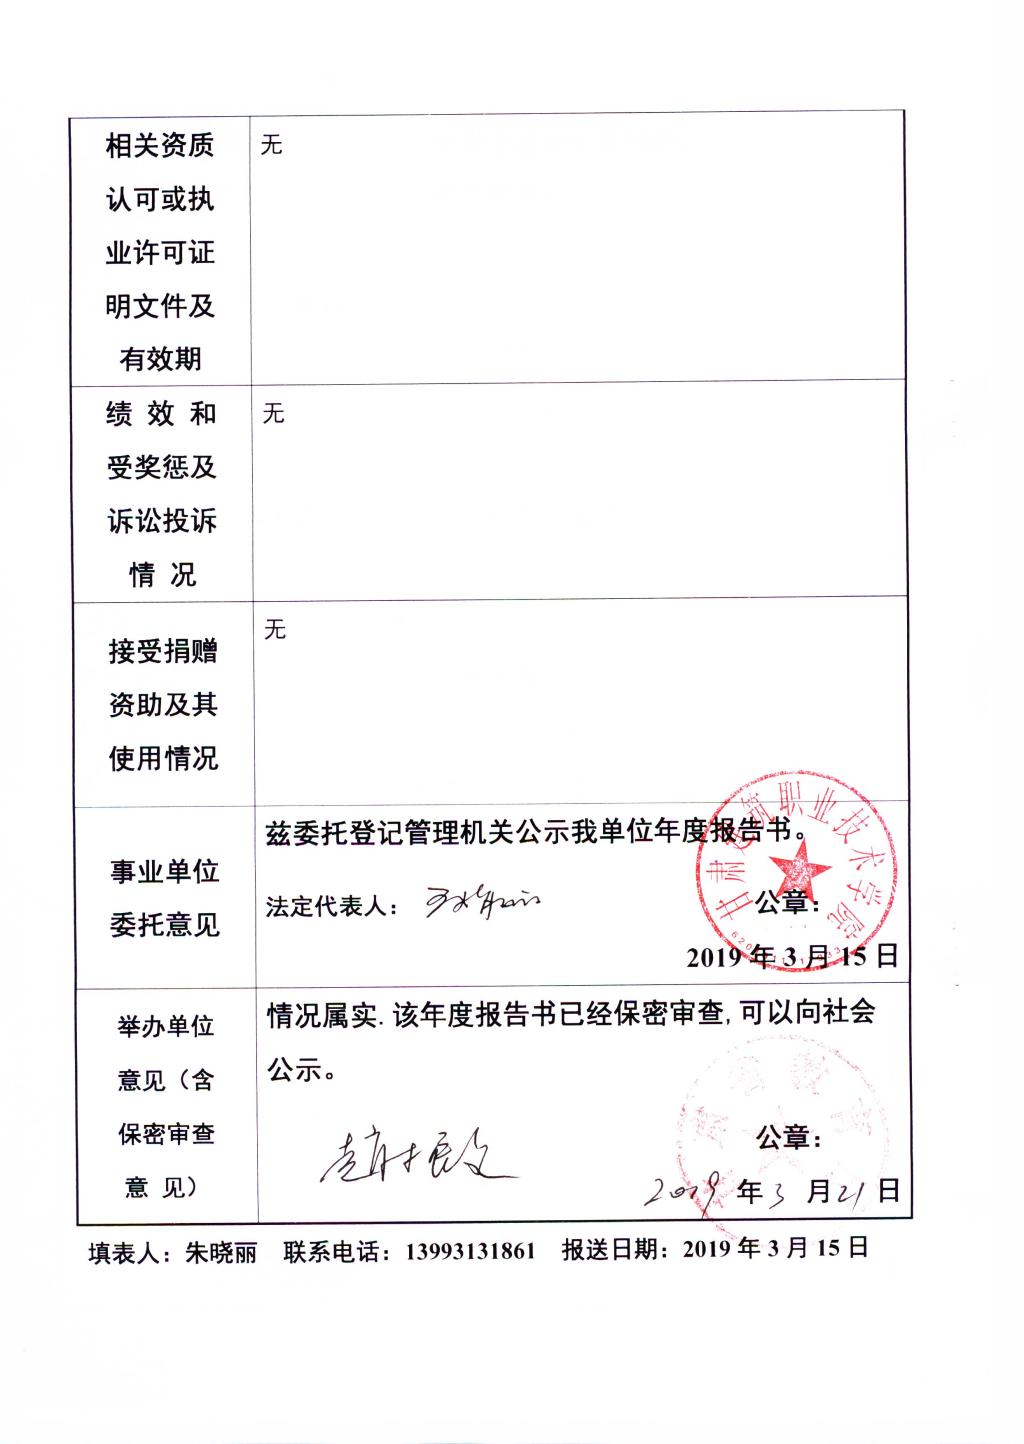 相关资质
认可或执
业许可证
明文件及
有效期
无
绩 效 和
受奖惩及
诉讼投诉
情 况
无
接受捐赠
资助及其
使用情况
无
事业单位
委托意见
兹委托登记管理机关公示我单位年度报告书。
法定代表人：
公章：
2019 年 3 月 15 日
甘肃建筑职业技术学院
举办单位
意见（含
保密审查
意 见）
情况属实. 该年度报告书已经保密审查, 可以向社会
公示。
公章：
2019 年 3 月 21 日
填表人：朱晓丽 联系电话：13993131861 报送日期：2019 年 3 月 15 日